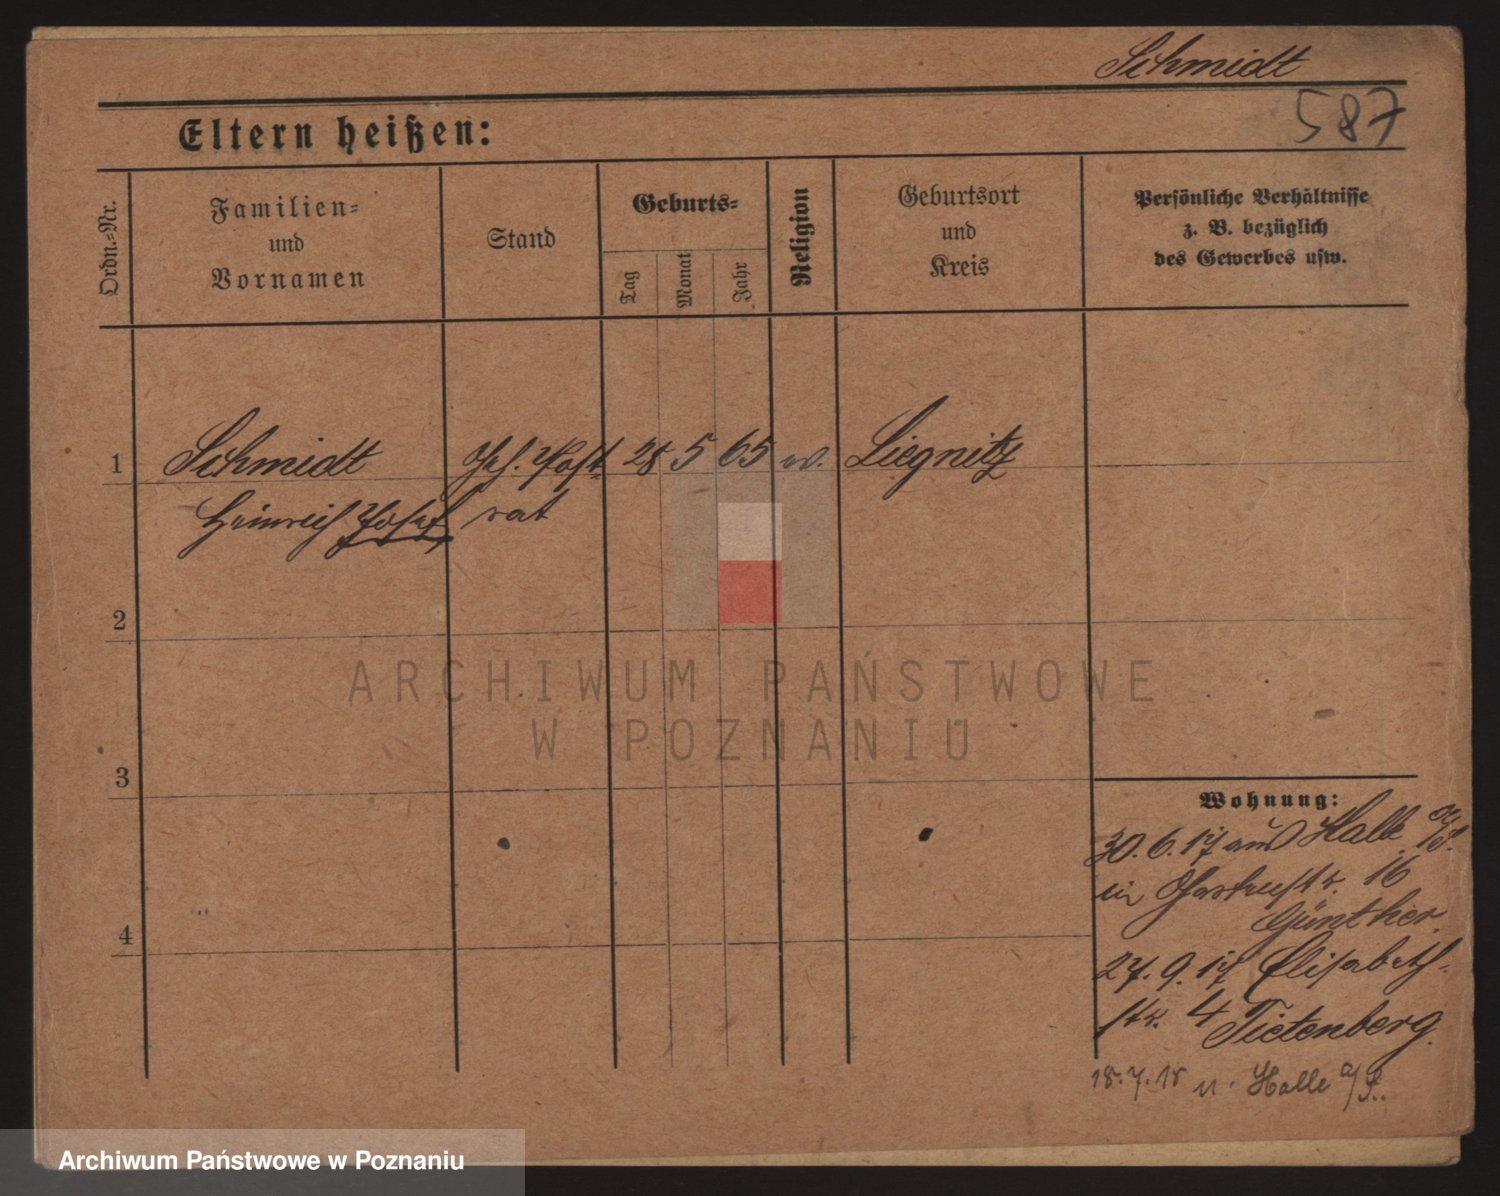 Schmidt
587
Eltern heißen:
Ordn.-Nr.
Familien-
und
Vornamen
Stand
Geburts-
Tag
Monat
Jahr
Religion
Geburtsort
und
Kreis
Persönliche Verhältnisse
z. B. bezüglich
des Gewerbes usw.
1 Schmidt Geh. Post- 28 5 65 Liegnitz
Heinrich Josef rat
2
ARCHIWUM PAŃSTWOWE
W POZNANIU
3
Wohnung:
30.6.17 aus Halle a/S.
in 16
Günther.
4
27.9.17 Elisabeth-
str. 4 Tietenberg.
18.7.18 n. Halle a/S.
Archiwum Państwowe w Poznaniu